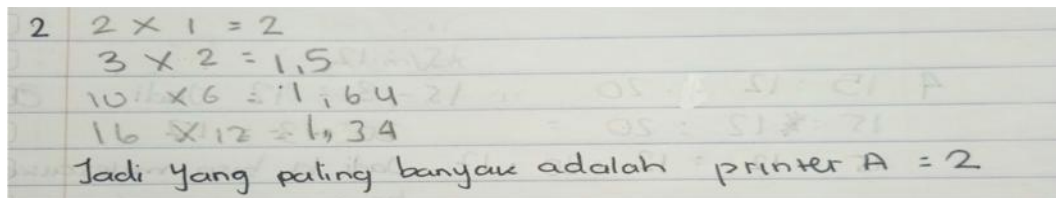 2 2 × 1 = 2
3 × 2 = 1,5
10 × 6 = 1,64
16 × 12 = 1,34
Jadi yang paling banyak adalah printer A = 2